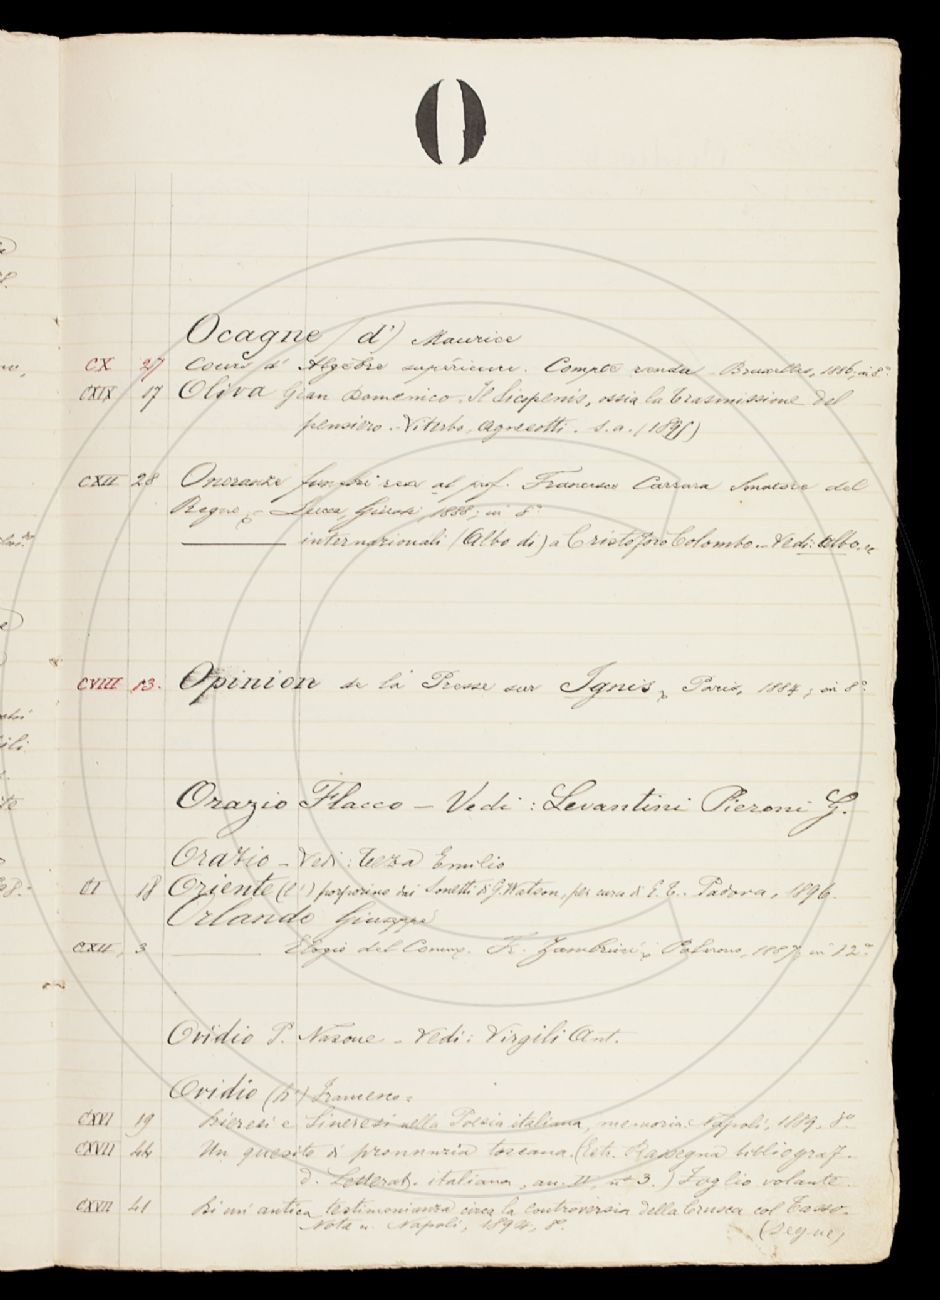 O
Ocagne (d') Maurice
CX 27 Cours d' Algèbre supérieure. Compte rendu - Bruxelles, 1886, in 8.°
CXIX 17 Oliva Gian Domenico. Il ossia la trasmissione del
pensiero. - Viterbo, Agnesotti. s. a. (1895)
CXII 28 Onoranze funebri rese al prof. Francesco Carrara Senatore del
Regno, - Lucca, Giusti, 1888; in 8.°
——— internazionali (Albo di) a Cristoforo Colombo. - Vedi: Albo. ec
CVIII 13. Opinion de la Presse sur Ignis, Paris, 1884; in 8.°
Orazio Flacco - Vedi: Levantini Pieroni G.
Orazio - Vedi: Teza Emilio
CI 18 Oriente (L') dai Sonetti di G. Watson, per cura di E. T. - Padova, 1896.
Orlando Giuseppe
CXII, 3 ——— Elogio del Comm. F. Zambrini, Palermo, 1887, in 12.°
Ovidio P. Nasone - Vedi: Virgili Ant.
Ovidio (D') Francesco =
CXVI 19 Dieresi e Sineresi nella Poesia italiana, memoria. Napoli, 1889. 8.°
CXVII 44 Un quesito di pronunzia toscana. (Estr. Rassegna bibliograf.
d. Letterat. italiana, an. II, n.° 3.) Foglio volante.
CXVII 41 Di un' antica testimonianza circa la controversia della Crusca col Tasso.
Nota ". Napoli, 1894, 8.°
(segue)